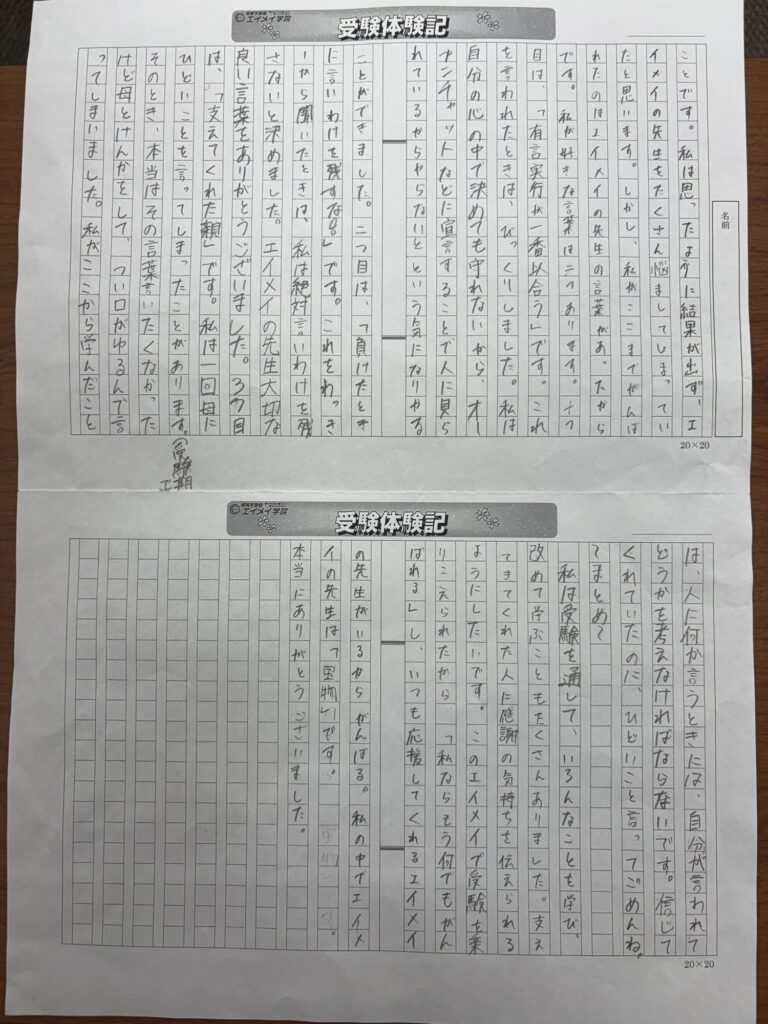 エイメイ学院
受験体験記
名前
ことです。私は思ったように結果が出ず、エ
イメイの先生をたくさん悩ましてしまってい
たと思います。しかし、私がここまでがんば
れたのはエイメイの先生の言葉があったから
です。私が好きな言葉は三つあります。一つ
目は、「有言実行が一番似合う」です。これ
を言われたときは、びっくりしました。私は
自分の心の中で決めても守れないから、オー
プンチャットなどに宣言することで人に見ら
れているからやらないとという気になりやる
ことができました。二つ目は、「負けたとき
に言いわけを残すな!!」です。これをわっき
ーから聞いたときは、私は絶対言いわけを残
さないと決めました。エイメイの先生大切な
良い言葉をありがとうございました。3つ目
は、「支えてくれた親」です。私は一回母に
ひどいことを言ってしまったことがあります。(受験期で
そのとき、本当はその言葉言いたくなかった
けど母とけんかをして、つい口がゆるんで言
ってしまいました。私がここから学んだこと
20×20
エイメイ学院
受験体験記
は、人に何か言うときには、自分が言われて
どうかを考えなければならないです。信じて
くれていたのに、ひどいこと言ってごめんね。
てまとめて
私は受験を通して、いろんなことを学び、
改めて学ぶこともたくさんありました。支え
てきてくれた人に感謝の気持ちを伝えられる
ようにしたいです。このエイメイで受験を乗
りこえられたから、「私ならもう何でもがん
ばれる」し、いつも応援してくれるエイメイ
の先生がいるからがんばる。私の中でエイメ
イの先生は「宝物」です。
本当にありがとうございました。
20×20